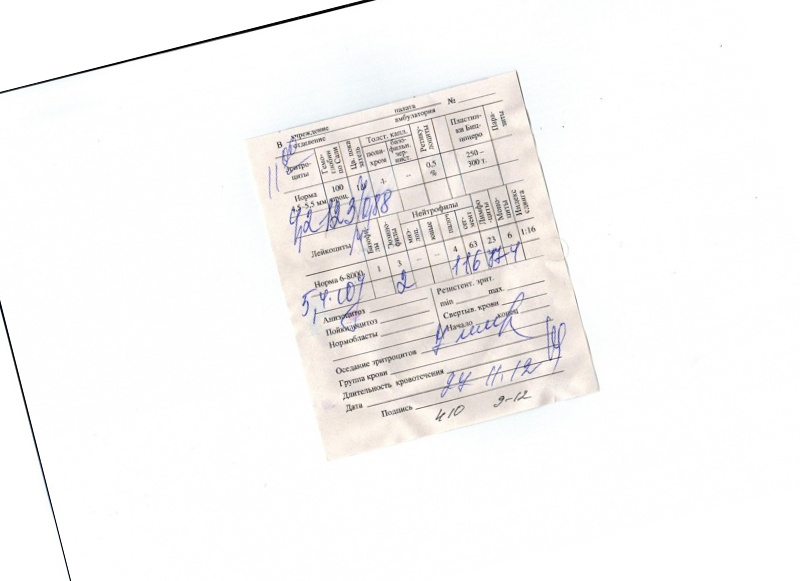 палата № 
В учреждение амбулатория
отделение
11
Эритро-
циты
Гемо-
глобин
по Сали
Цв. пока
затель
Толст. капл.
поли-
хром
базо-
фильн.
зер-
нист.
Ретику-
лоциты
Пластин-
ки Биц-
цоцеро
Пара-
зиты
Норма
4,5-5,5 мм
100
проц.
1
0,5
%
250 –
300 т.
4,2 123 0,88
Лейкоциты
Базофи-
лы
Эозино-
филы
Нейтрофилы
мие-
лоц.
юные
палоч.
сег-
мент.
Лимфо
циты
Моно-
циты
Индекс
сдвига
Норма 6-8000
1 3 .. .. 4 63 23 6 1:16
5,4 10 2
Анизоцитоз
Пойкилоцитоз
Нормобласты
Резистент. эрит.
min max.
Свертыв. крови
Начало конец
Оседание эритроцитов 4 мм
Группа крови
Длительность кровотечения
Дата 27 11.12
Подпись
410 9-12